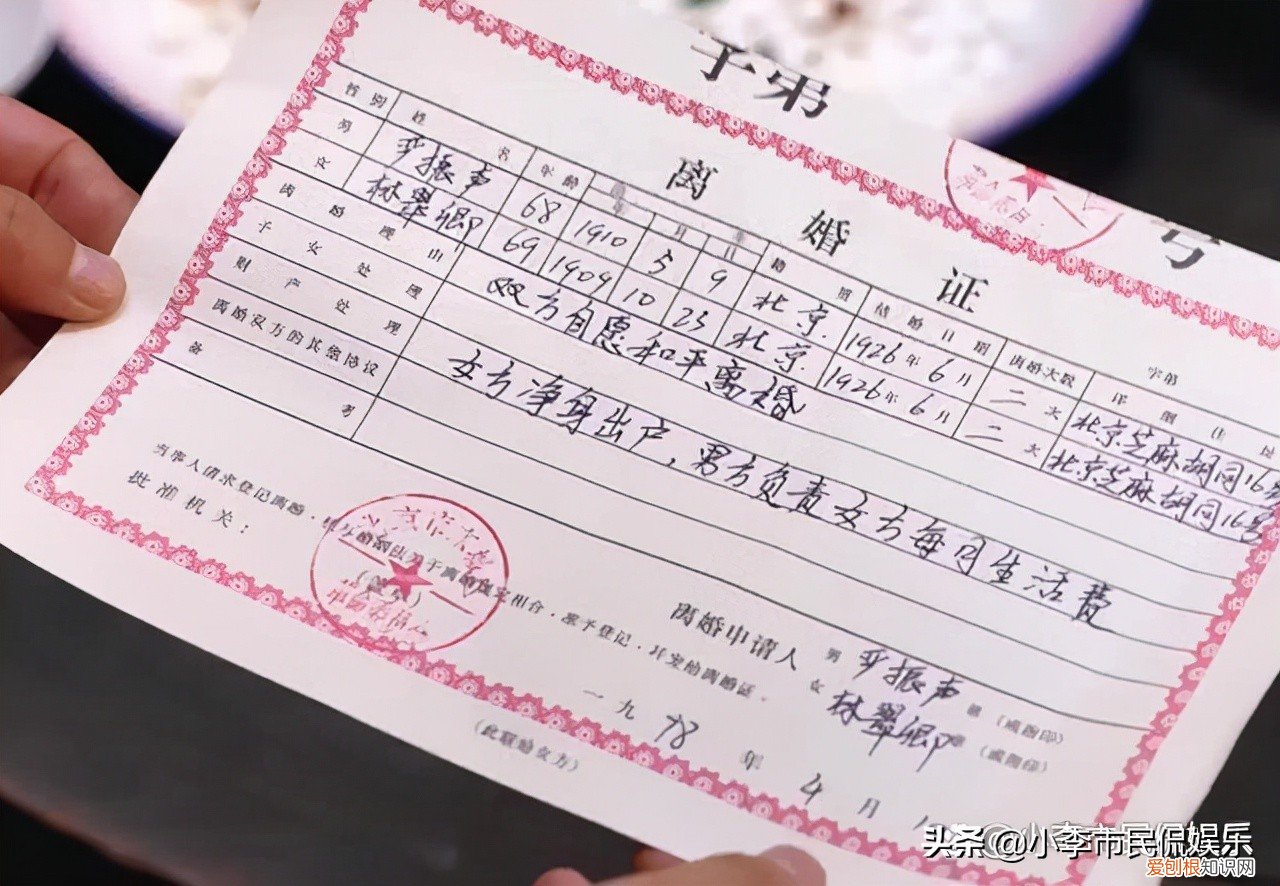 字第
号
离婚证
字第
性别 姓名 年龄 月 日 籍贯 结婚日期 离婚次数 详细住址
男 严振声 68 1910 5 9 北京 1926年6月 二次 北京芝麻胡同16号
女 林翠卿 69 1909 10 23 北京 1926年6月 二次 北京芝麻胡同16号
离婚理由 双方自愿和平离婚
子女处理
财产处理 女方净身出户，男方负责女方每月生活费
离婚双方的其他协议
备考
当事人请求登记离婚，经与婚姻法关于离婚规定相合，准予登记，并发给离婚证。
批准机关：
(签名)
离婚申请人 男 严振声 (或指印)
女 林翠卿 (或指印)
一九78年4月
(此联给女方)
头条@小李市民侃娱乐
爱刨根知识网